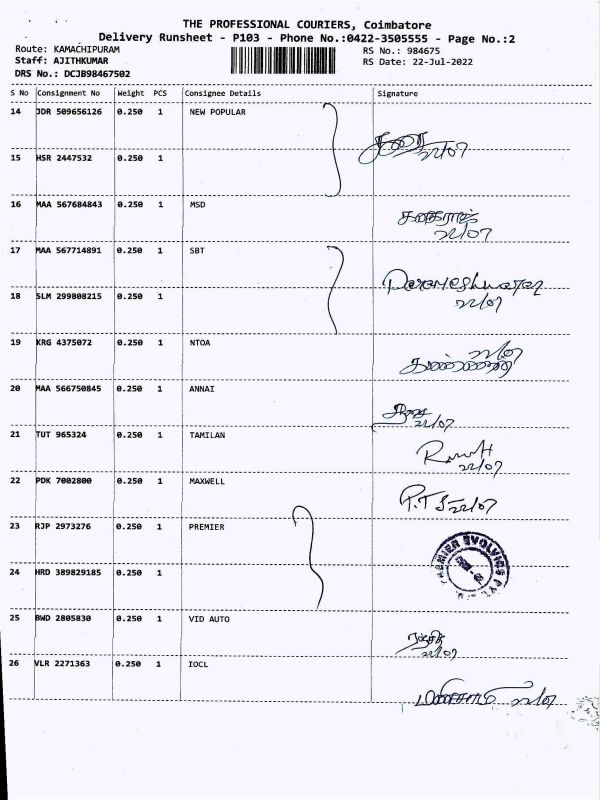 THE PROFESSIONAL COURIERS, Coimbatore
Delivery Runsheet - P103 - Phone No.:0422-3505555 - Page No.:2
Route: KAMACHIPURAM RS No.: 984675
Staff: AJITHKUMAR RS Date: 22-Jul-2022
DRS No.: DCJB98467502
S No Consignment No Weight PCS Consignee Details Signature
14 JDR 509656126 0.250 1 NEW POPULAR
22/07
15 HSR 2447532 0.250 1
16 MAA 567684843 0.250 1 MSD
22/07
17 MAA 567714891 0.250 1 SBT
Parameshwaran
18 SLM 299808215 0.250 1
22/07
19 KRG 4375072 0.250 1 NTOA
22/07
20 MAA 566750845 0.250 1 ANNAI
22/07
21 TUT 965324 0.250 1 TAMILAN
22/07
22 PDK 7002800 0.250 1 MAXWELL
22/07
23 RJP 2973276 0.250 1 PREMIER
PREMIER EVOLVICS
24 HRD 389829185 0.250 1
25 BWD 2805830 0.250 1 VID AUTO
22/07
26 VLR 2271363 0.250 1 IOCL
22/07